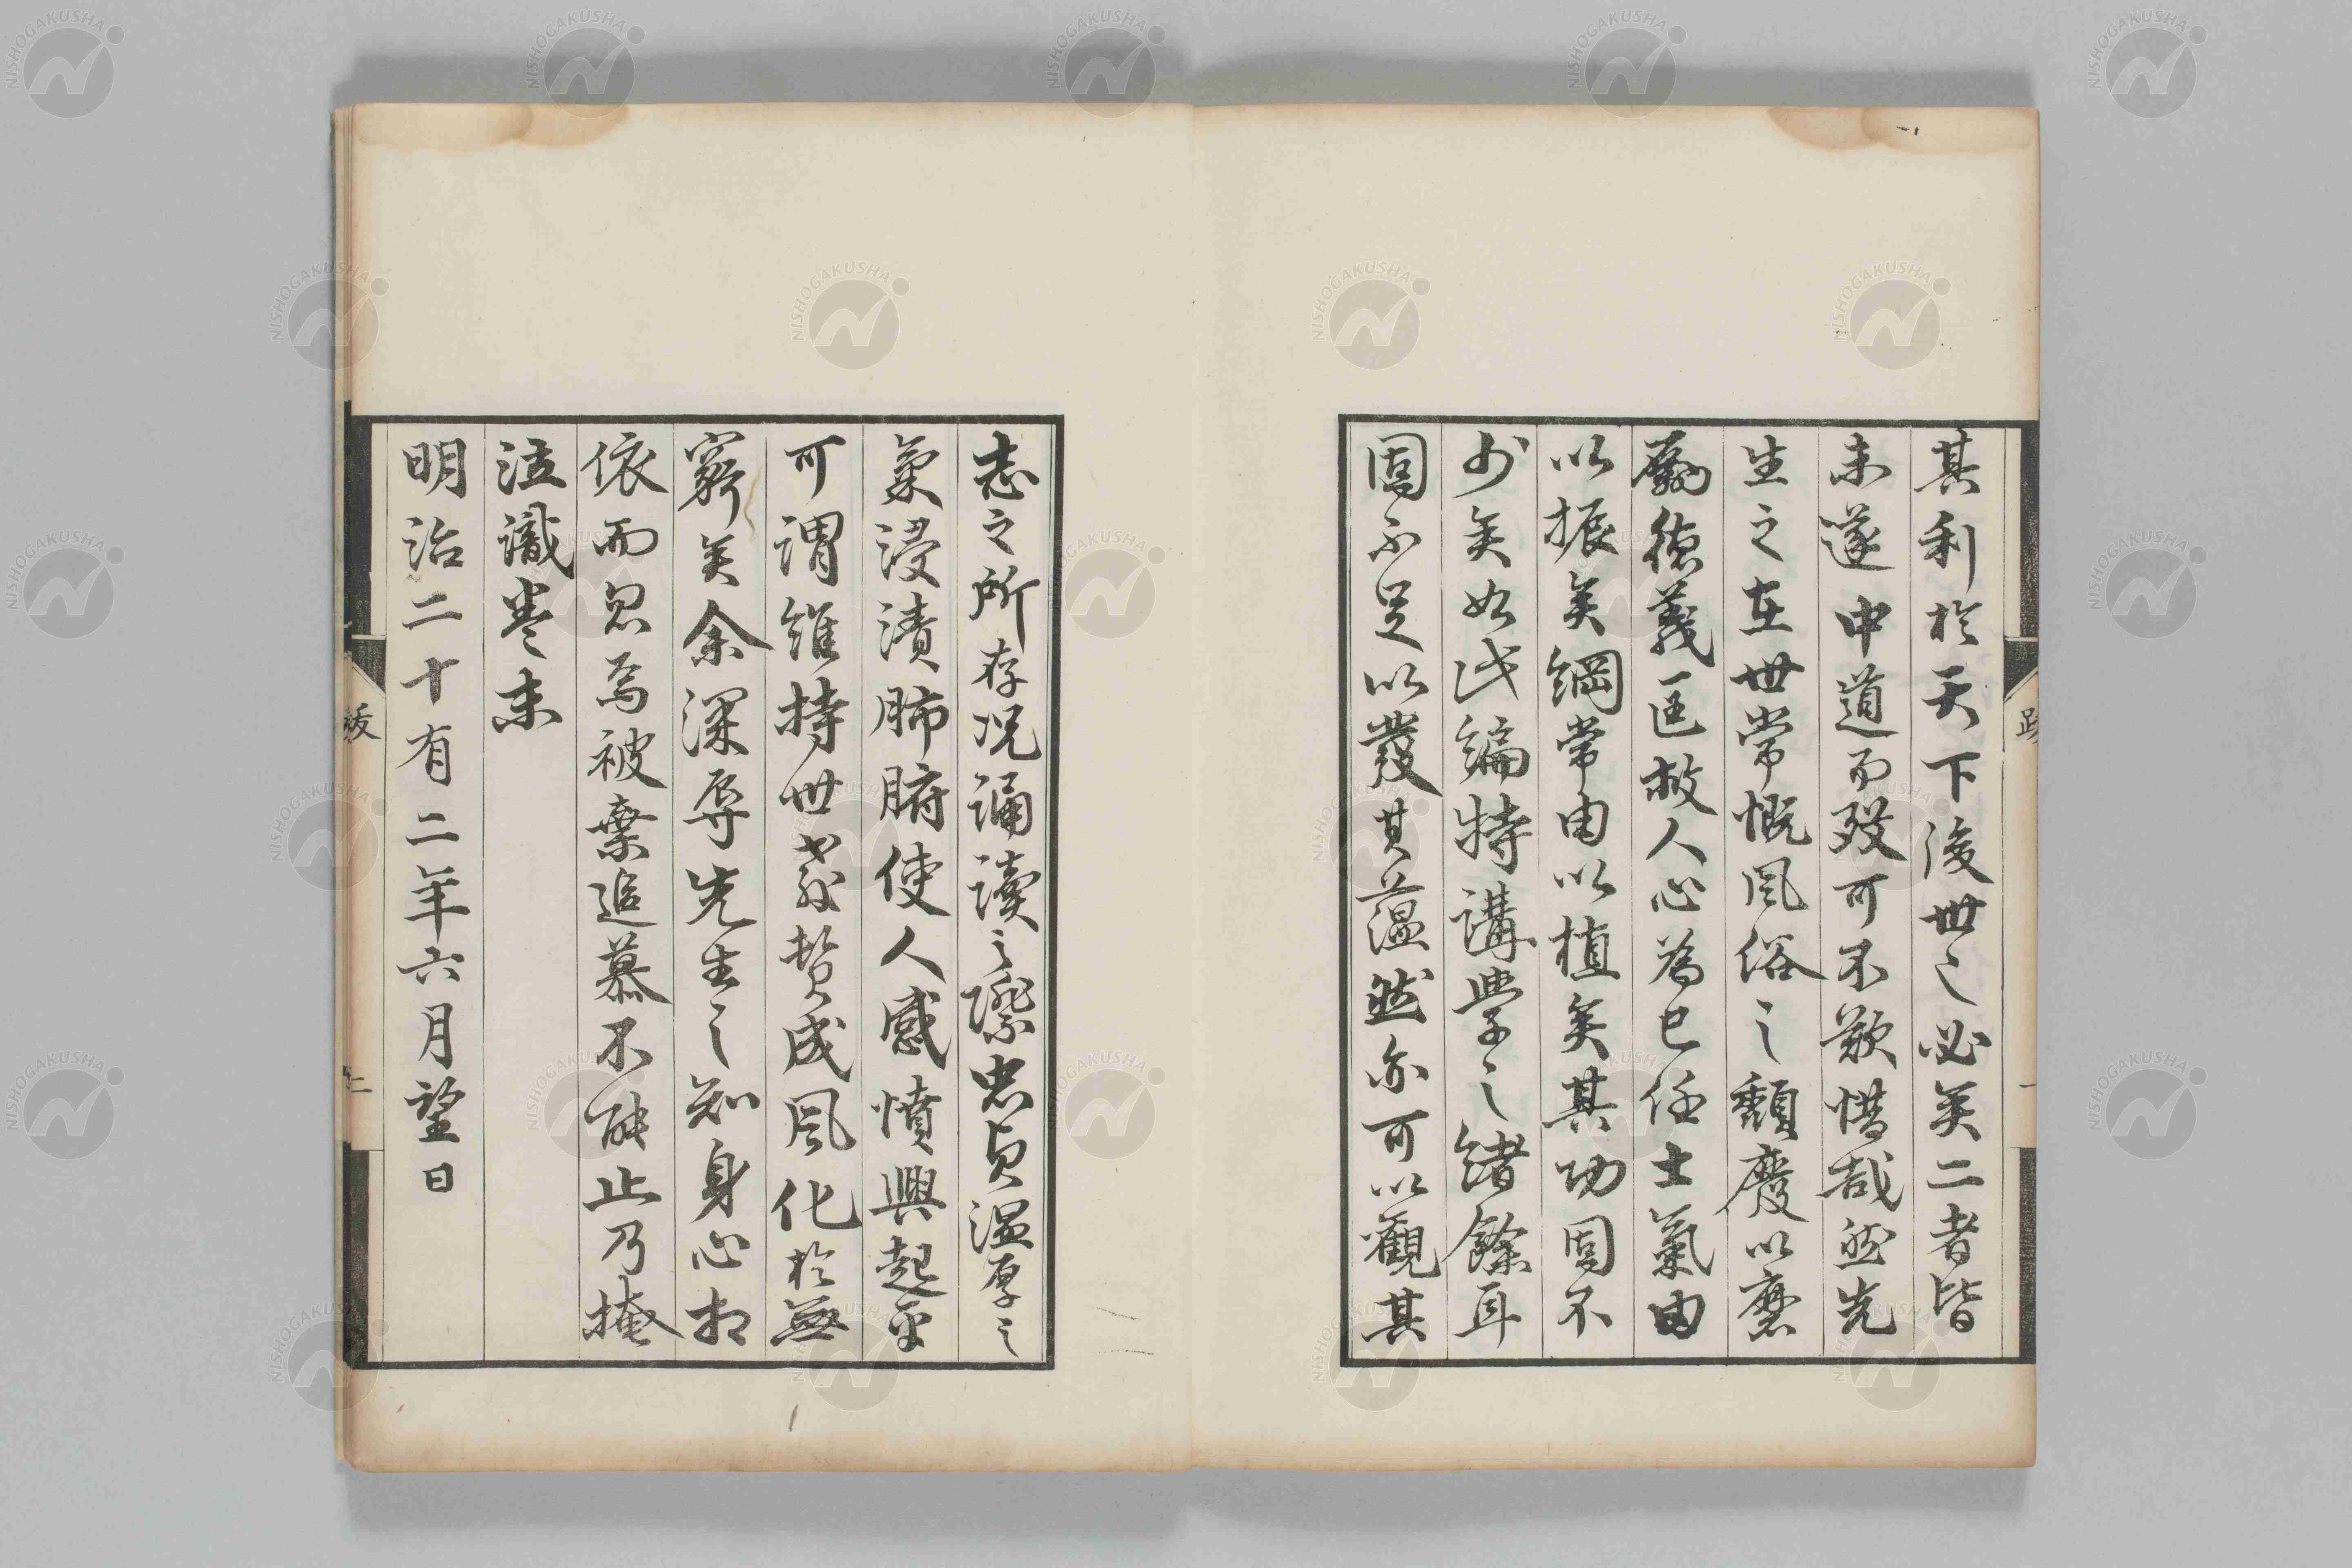 其利於天下後世之必矣二者皆
未遂中道而歿可不歎惜哉然先
生之在世常慨風俗之頽廢以磨
勵德義匡救人心為己任士氣由
以振矣綱常由以植矣其功固不
少矣如此編特講學之緒餘耳
固不足以發其蘊然亦可以觀其
志之所存况誦讀之際忠貞温厚之
氣浸漬肺腑使人感憤興起乎
可謂維持世教贊成風化於無
窮矣余深辱先生之知身心相
依而忽焉被棄追慕不能止乃掩
泣識巻末
明治二十有二年六月望日
跋
一
跋
二
NISHOGAKUSHA